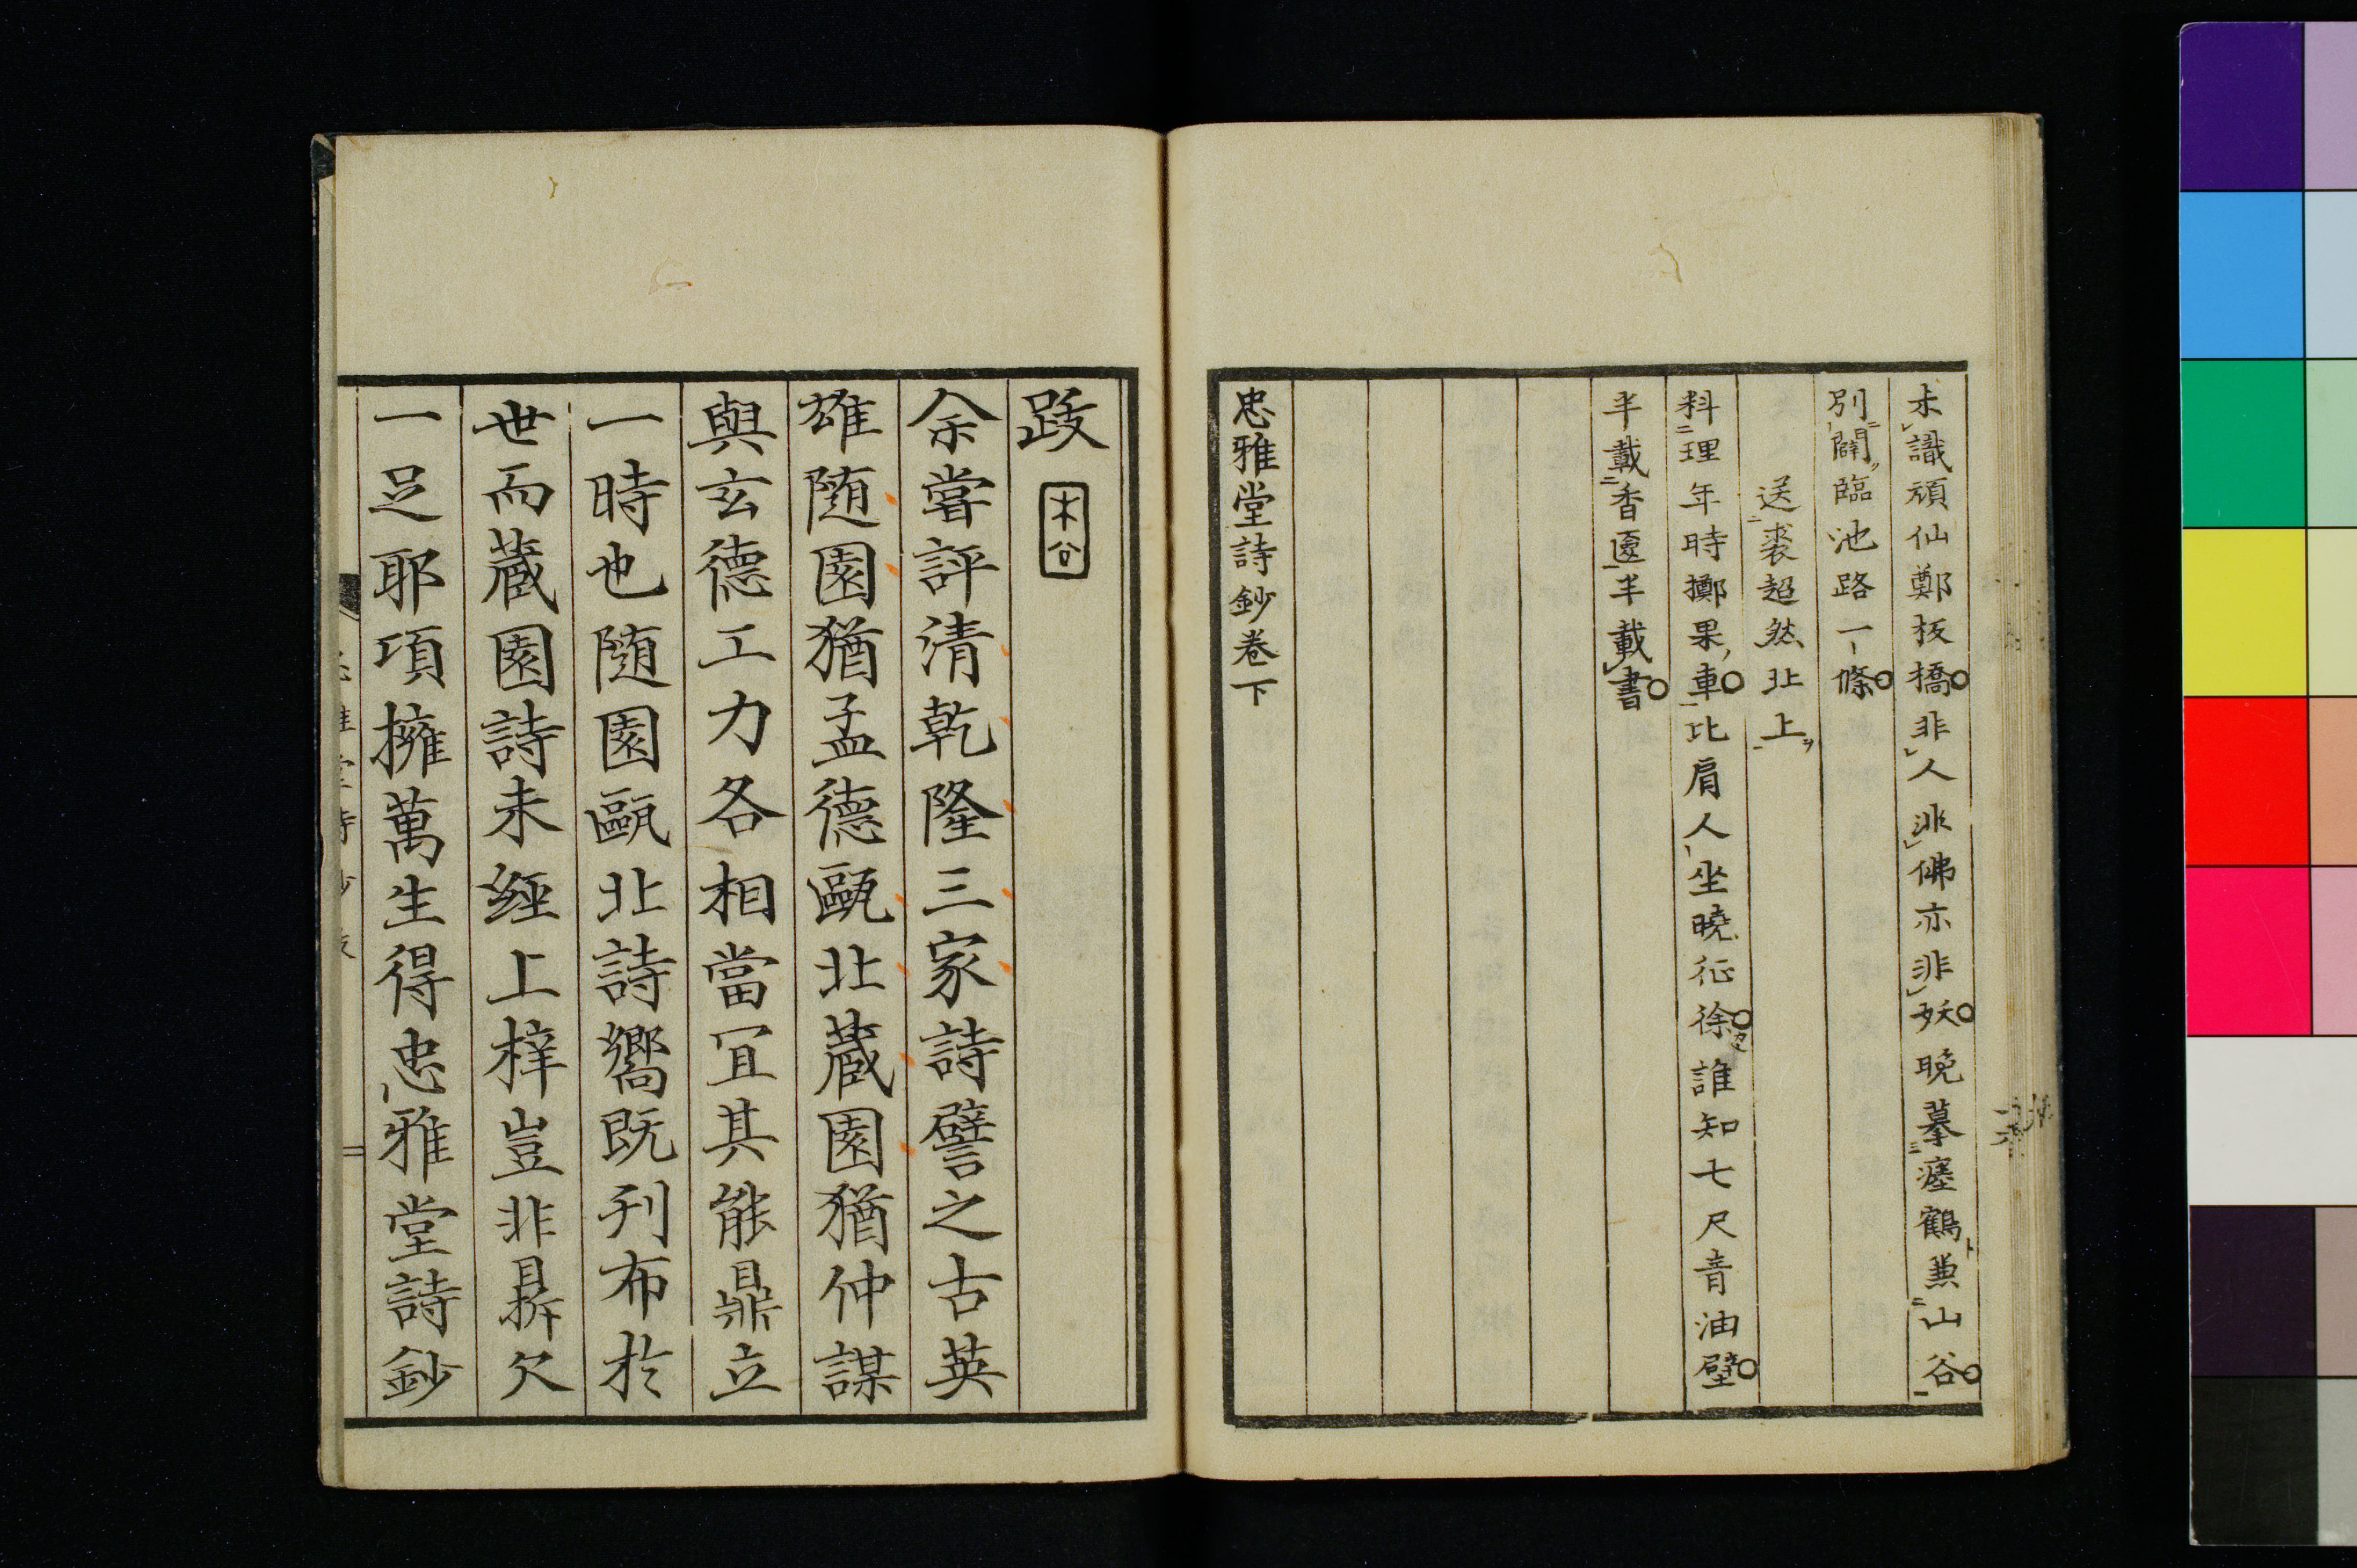 未識頑仙鄭板橋非人非佛亦非妖晩摹瘞鶴兼山谷
別闢臨池路一條
送裘超然北上
料理年時擲果車比肩人坐曉征徐誰知七尺青油壁
半載香匳半載書
忠雅堂詩鈔卷下
跋
余嘗評清乾隆三家詩譬之古英
雄随園猶孟德甌北蔵園猶仲謀
與玄德工力各相當冝其能鼎立
一時也随園甌北詩嚮既刊布於
世而蔵園詩未經上梓豈非鼎欠
一足耶項擁萬生得忠雅堂詩鈔